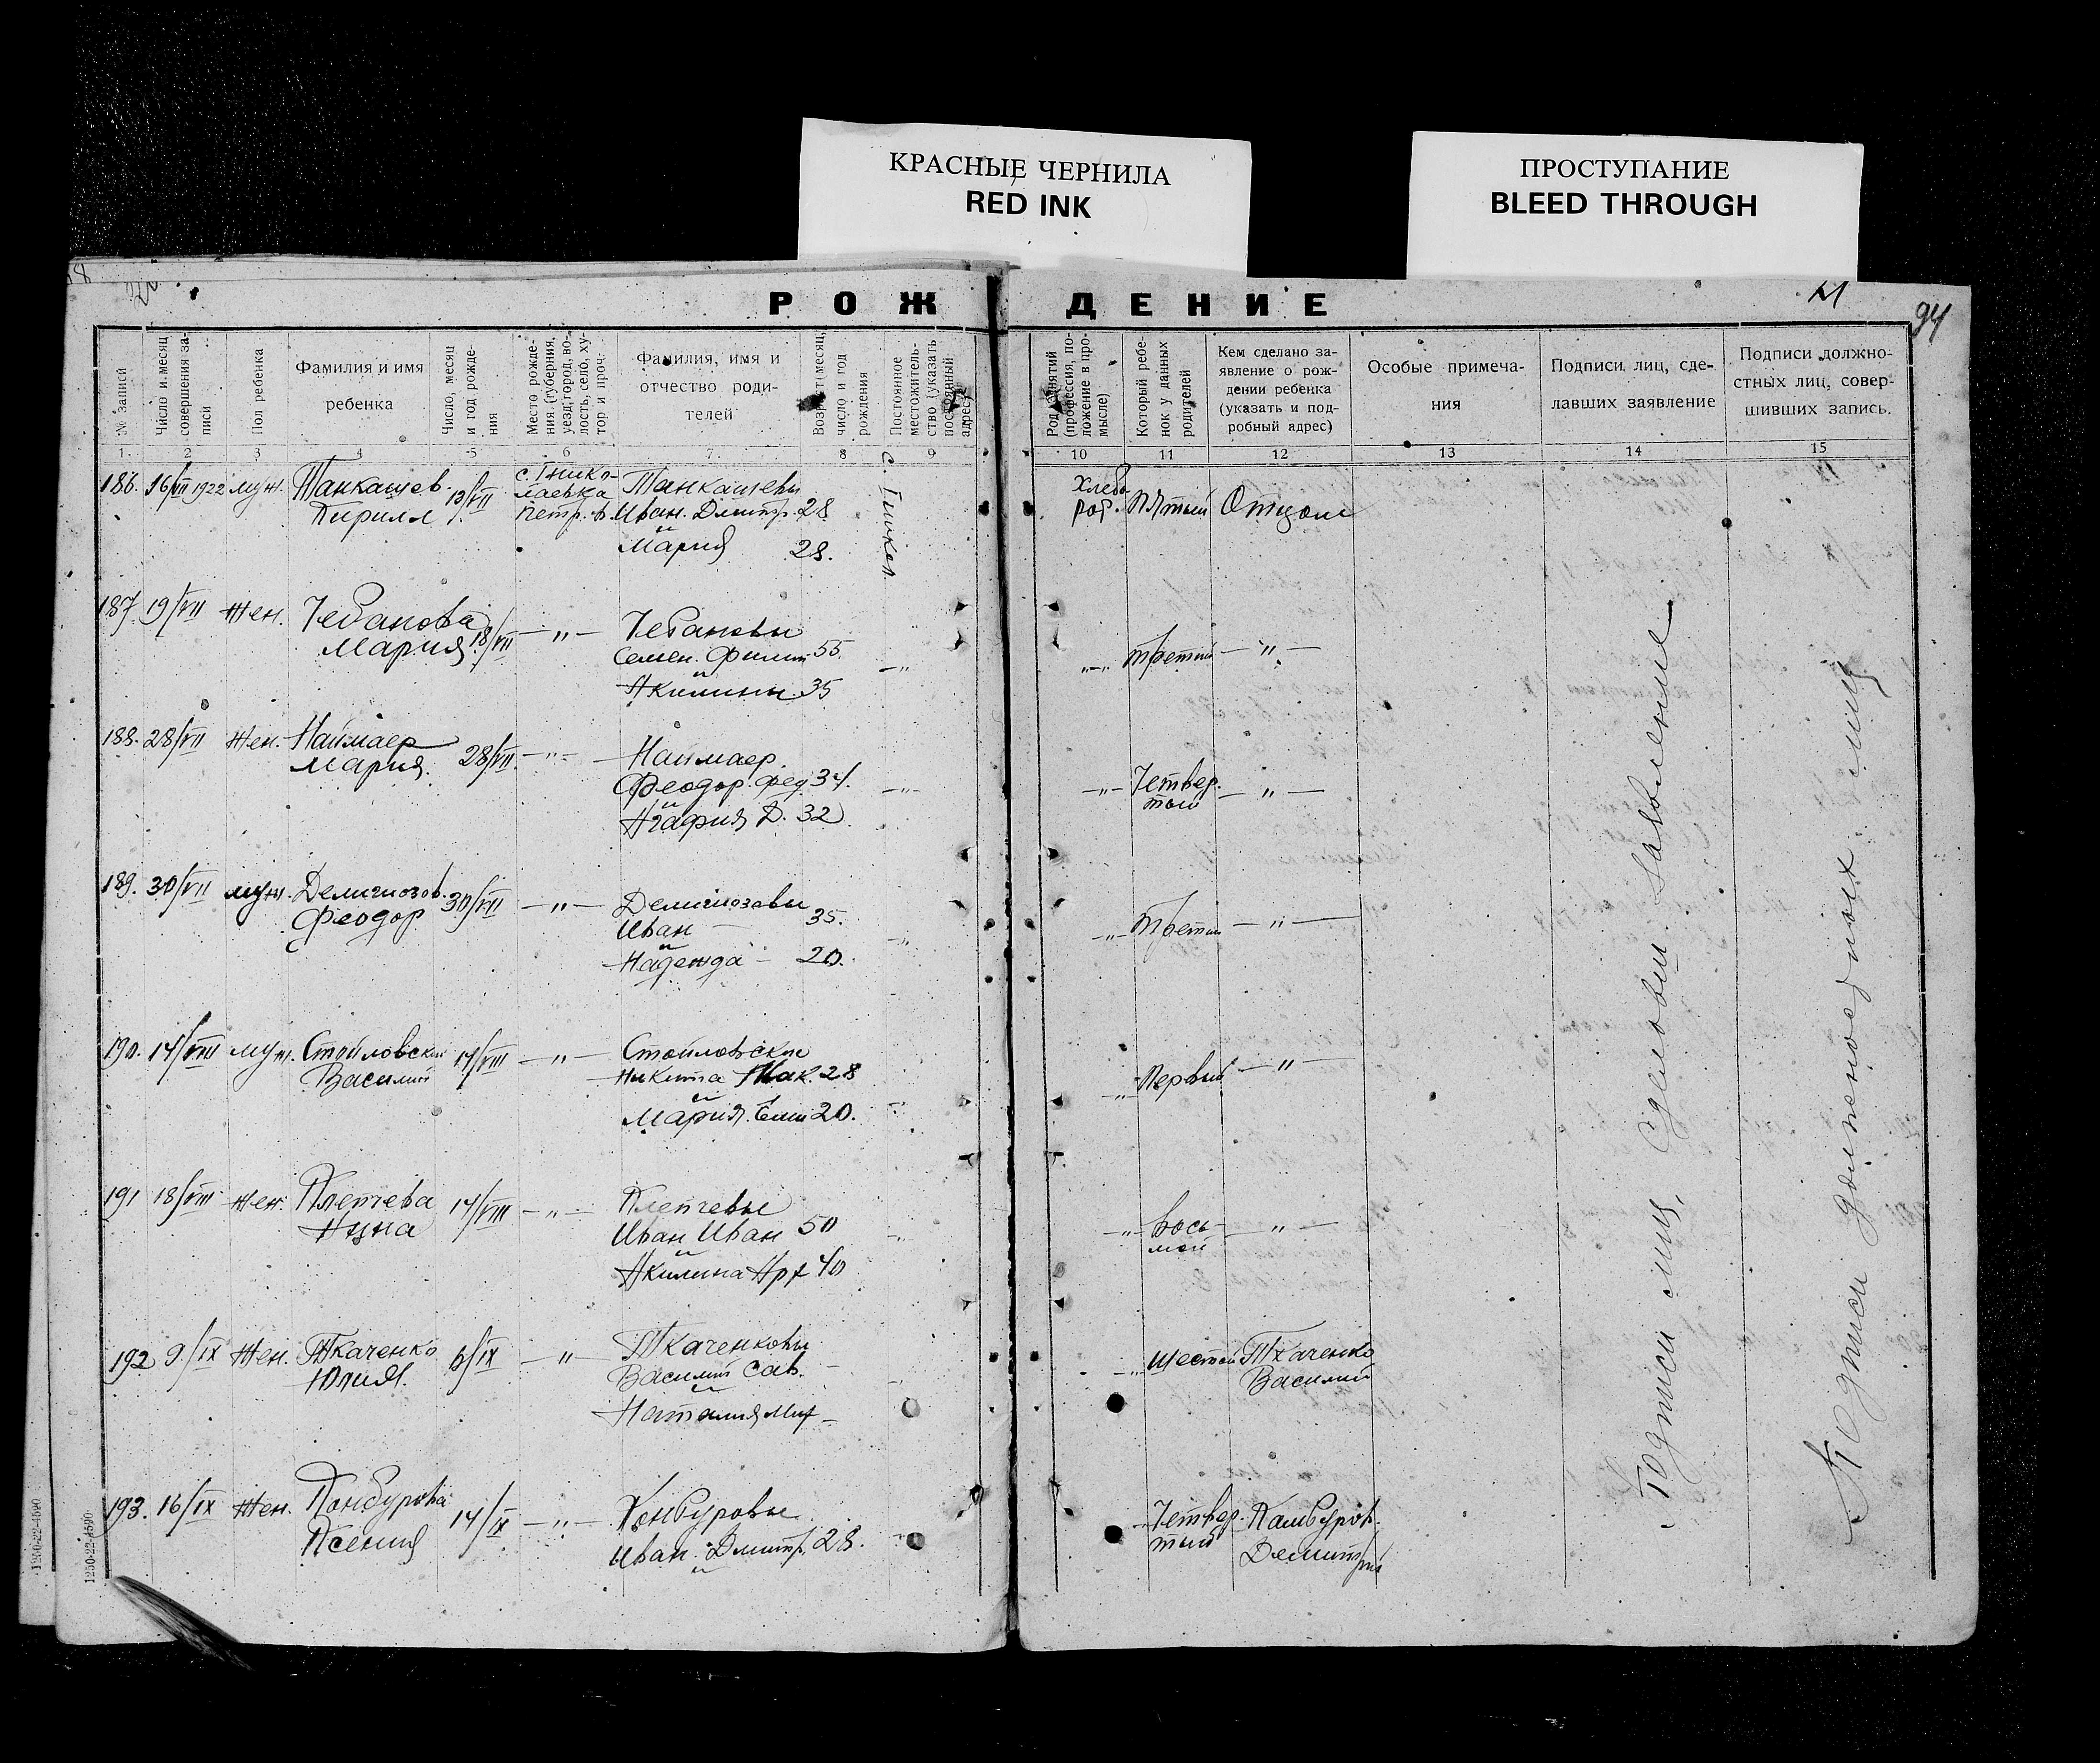 КРАСНЫЕ ЧЕРНИЛА
RED INK
ПРОСТУПАНИЕ
BLEED THROUGH
РОЖДЕНИЕ
94
№ записи
Число и месяц совершения записи
Пол ребенка
Фамилия и имя
ребенка
Число, месяц и год рождения
Место рождения. (губерния, уезд, город, волость, село, хутор и проч.
Фамилия, имя и
отчество роди-
телей
Возраст: месяц, число и год рождения
Постоянное местожительство (указать постоянный адрес)
Род занятий (профессия, положение в промысле)
Который ребенок у данных родителей
Кем сделано за-
явление о рож-
дении ребенка
(указать и под-
робный адрес)
Особые примеча-
ния
Подписи лиц, сде-
лавших заявление
Подписи должно-
стных лиц, совер-
шивших запись.
1. 2 3 4 5 6 7. 8 9 10 11 12 13 14 15
186. 16/VII 1922 муж. Танкашев. 13/VII
Кирилл
Танкашевы
Иван. Дмитр. 28
и
Мария 28.
Хлебо
роб. Пятый Отцом
187. 19/VII Жен. Чебанова
Мария 18/VII — " —
Чебановы
Семен. Филип 55
и
Акилины. 35
— "
" — " третий — " —
188. 28/VII Жен. Наймаер
Мария. 28/VII — " —
Наймаер.
Феодор. Фед 34.
и
Агафия Д. 32
— " —
— " — Четвер.
тый — " —
189. 30/VII муж. Делигиозов.
Феодор 30/VII — " —
Делигиозовы
Иван — 35.
и
Надежда — 20.
— " — Третий — " —
190. 14/VIII муж. Стойловский 14/VIII — " —
Василий
Стойловские
Никита Мак. 28
и
Мария. 20.
— " Первый — " —
191 18/VIII Жен. Клепчева 14/VIII — " —
Нина
Клепчевы
Иван Иван 50
и
Акилина 40
— " — Вось
мой — " —
192 9/IX Жен. Ткаченко 6/IX — " —
Юлия.
Ткаченковы
Василий Сав. —
и
Наталия Мит —
— " Шестой Ткаченко
Василий
193. 16/IX Жен. Камбурова 14/IX — " —
Ксения
Камбуровы
Иван. Дмитр. 28.
и
Четвер.
тый Камбуров.
Демитрий
Подписи лиц, сделовши. заявление
Подписи должностных лиц
1250-22-4590
1250-22-4590